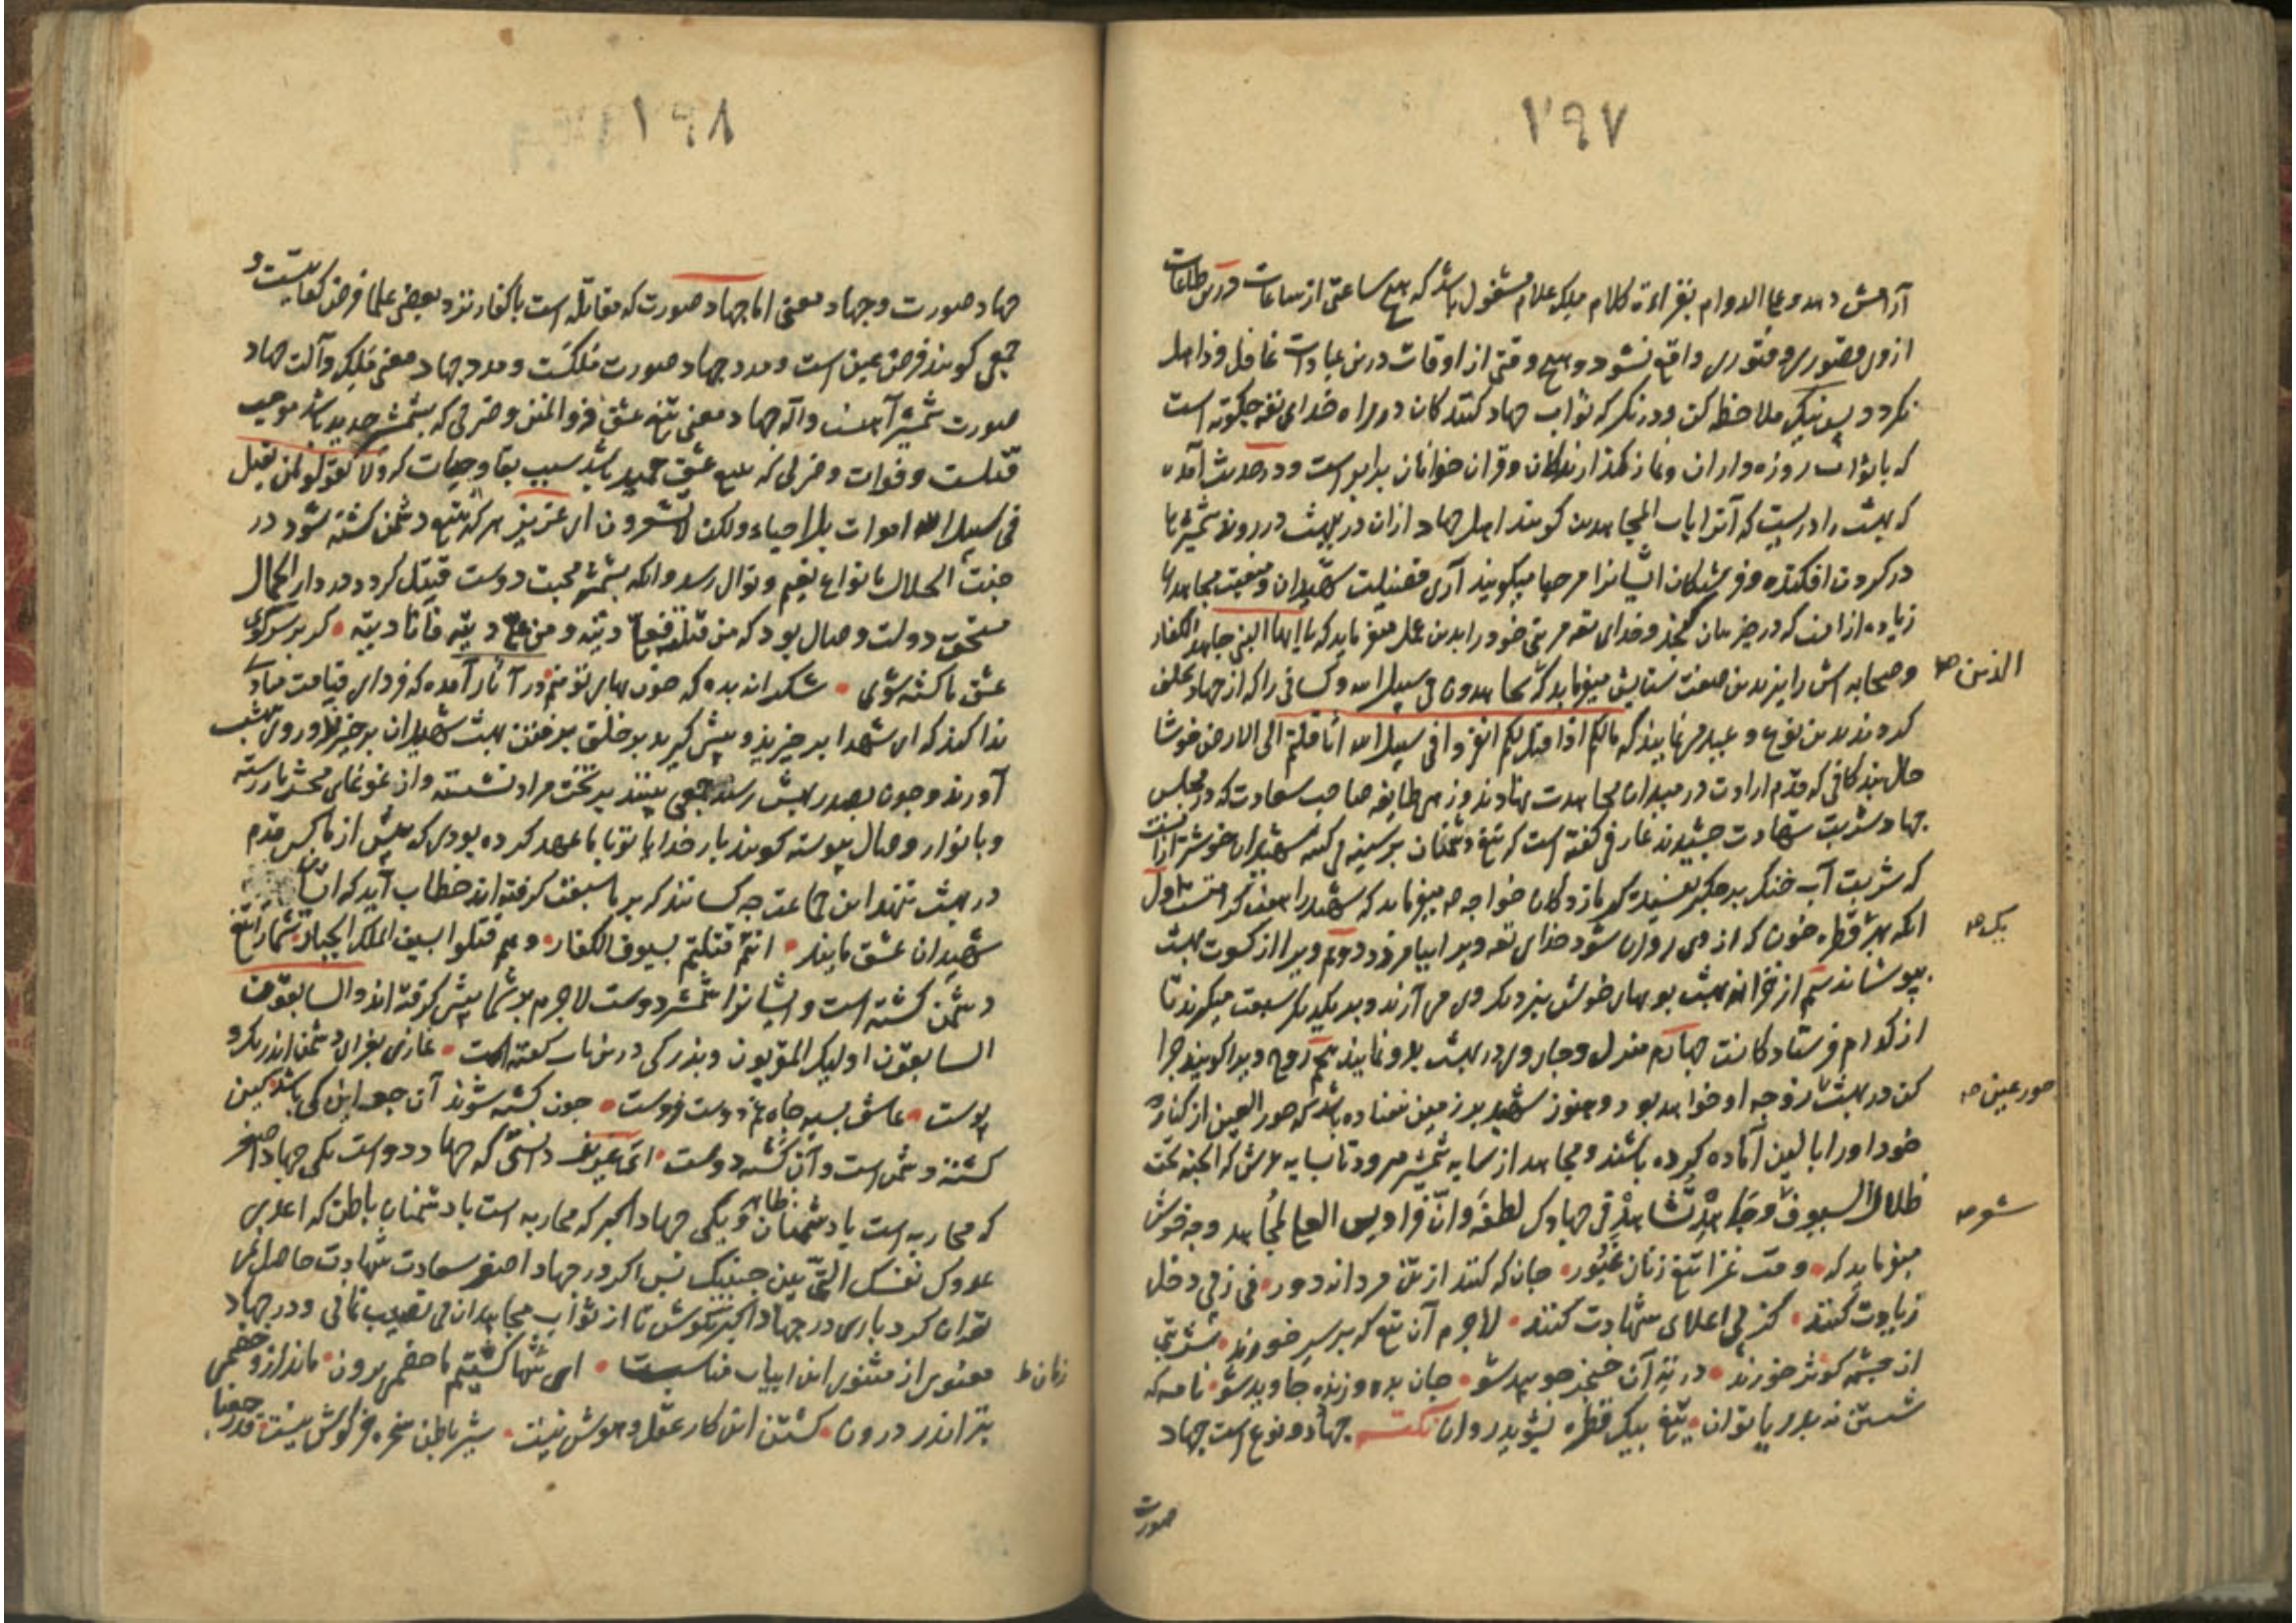 ٢٩٧
آرامش دهد و علی الدوام بقراءة کلام ملک علام مشغول باشد که هیچ ساعتی از ساعات درین طاعات
از وی قصوری و فتوری واقع نشود و هیچ وقتی از اوقات درین عبادات غافل و ذاهل
نکردد پس نیک ملاحظه کن و درنکر که ثواب جهاد کنندکان در راه خدای تعه چکونه است
که با ثواب روزه داران و نماز کذارندکان و قران خوانان برابر است و در حدیث آمده
که بهشت را دریست که آنرا باب المجاهدین کویند اهل جهاد ازان در ببهشت در روند شمشیرها
در کردن افکنده و فرشتکان ایشانرا مرحبا میکویند آری فضیلت شهیدان و منقبت مجاهدان
زیاده از انست که در حیز بیان کنجد و خدای تعه نبی خود را بدین عمل میفرماید که یا ایها النبی جاهد الکفار
و صحابه اش را نیز بدین صفت ستایش میفرماید که یجاهدون فی سبیل الله و کسانی را که از جهاد تخلف
الذین صح
کردند بدین نوع و عید میفرماید که مالکم اذا قیل لکم انفروا فی سبیل الله اثاقلتم الی الارض خوشا
حال بندکانی که قدم ارادت در میدان مجاهدت نهادند و زهی طایفه صاحب سعادت که در مجلس
جهاد شربت شهادت چشیدند عارفی کفته است که تیغ دشمنان بر سینه شهیدان خوشتر ازانست
که شربت آب خنک بر جکر تشنه خواجه صم میفرماید که شهید را هفت کرامتست اول
انکه بهر قطره خون که از وی روان شود خدای تعه ویرا بیامرزد دوم ویرا از کسوت بهشت
یک صح
بپوشاند سیم از خزانه بهشت بویهای خوش بنزدیک وی می آرند و بر یکدیکر سبقت میکیرند تا
از کدام فرستاد کانست چهارم منزل و جای وی در بهشت بدو نمایند پنجم زوج ویرا کویند چرا
کن در بهشت زوجه او خواهد بود و هنوز شهید بر زمین نیفتاده باشد که حور العین از کنار
حور عین صح
خود او را بالین آماده کرده باشند و مجاهد از سایه شمشیر میرود تا بسایه عرش که الجنة تحت
ظلال السیوف و جاهد تشاهد فی جهادک لطفه و ان فرادیس العلی لمجاهد و چه خوش
شعر صح
میفرماید که وقت غزا تیغ زنان غیور جان که کنند از تن مردانه دور فی زقی دخل
زیادت کنند کز پی اعلای شهادت کنند لاجرم آن تیغ که بر سر خورند شربتی
از چشمه کوثر خورند در ته آن خنجر جو بید شو جان بده و زنده جاوید شو نامه که
شستن نه بدریا توان تیغ بیک قطره بشوید روان نکته جهاد دو نوع است جهاد
صورت
٢٩٨
جهاد صورت و جهاد معنی اما جهاد صورت که مقاتله است با کفار نزد بعضی علما فرض کفایتست و
جمعی کویند فرض عین است و مدد جهاد صورت ملکست و مدد جهاد معنی ملک و آلت جهاد
صورت شمشیر آهنست و آلة جهاد معنی تیغ عشق ذو المنن و ضربی که بشمشیر حدید باشد موجب
قتلست و فوات و ضربی که بتیغ عشق حمید باشد سبب بقا و حیات که ولا تقولوا لمن یقتل
فی سبیل الله اموات بل احیاء ولکن لا تشعرون ای عزیز هر که بتیغ دشمن کشته شود در
جنت الجلال بانواع نعیم و نوال رسد و انکه بشمشیر محبت دوست قتیل کردد در دار الجمال
مستحق دولت وصال بود که من قتلته فعلی دیته و من علی دیته فانا دیته کر بر سر کوی
عشق ما کشته شوی شکرانه بده که خون بهای تو منم در آثار آمده که فردای قیامت منادی
ندا کند که ای شهدا برخیزید و پیش کیرید بر خلق برفتن بهشت شهیدان برخیزند و روی ببهشت
آورند و چون بصدر بهشت رسند جمعی بینند بر تخت مراد نشسته و از غوغای محشر بازرسته
و بانوار وصال پیوسته کویند بار خدایا تو با ما عهد کرده بودی که پیش از ما کس قدم
در بهشت ننهد این جماعت چه کسانند که بر ما سبقت کرفته اند خطاب آید که اینان
شهیدان عشق مایند انتم قتلتم بسیوف الکفار و هم قتلوا بسیف الملک الجبار شما را تیغ
دشمن کشته است و ایشانرا شمشیر دوست لاجرم بر شما پیش کرفته اند و السابقون
السابقون اولیک المقربون و بزرکی درین باب کفته است غازی بغزای دشمن اندر تک و
پوست عاشق بسیه چاه غم دوست فروست چون کشته شوند آن چو این کی باشد کین
کشته دشمن است و آن کشته دوست ای عزیز دانستی که جهاد دو است یکی جهاد اصغر
که محاربه است با دشمنان ظاهر و یکی جهاد اکبر که محاربه است با دشمنان باطن که اعدی
عدوک نفسک التی بین جنبیک پس اکر در جهاد اصغر سعادت شهادت حاصل نمی
توان کرد باری در جهاد اکبر بکوش تا از ثواب مجاهدان بی نصیب نمانی و در جهاد
معنوی از مثنوی این ابیات مناسبست ای شهان کشتیم ما خصمی برون ماند ازو خصمی
زمان ط
بتر اندر درون کشتن این کار عقل و هوش نیست شیر باطن سخره خرکوش نیست قد رجعنا